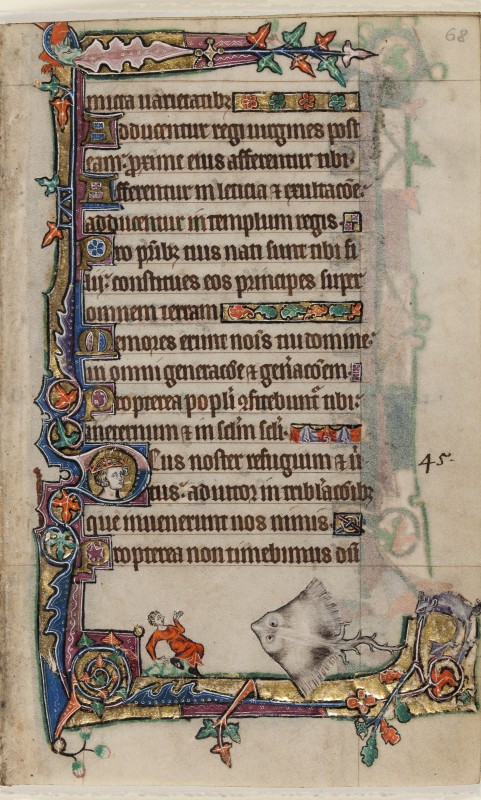 68
micta uarietatibȝ
Adducentur regi uirgines post
eam: proxime eius afferentur tibi
Afferentur in leticia ⁊ exultacõe:
adducentur in templum regis.
Pro pr̃ibȝ tuis nati sunt tibi fi
lij: constitues eos principes super
omnem terram
Memores erunt nois̃ tui domine:
in omni generacõe ⁊ gen̾acõem.
Propterea popl̃i ꝯfitebunt̃ tibi:
in eternum ⁊ in sclm̃ scl̃i.
Deus noster refugium ⁊ ũ
45.
tus: adiutor in tribl̾acõibȝ
que inuenerunt nos nimis.
Propterea non timebimus dũ